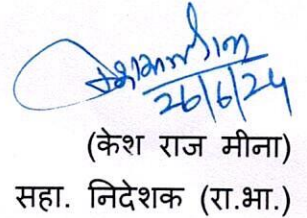 26/6/24
(केश राज मीना)
सहा. निदेशक (रा.भा.)